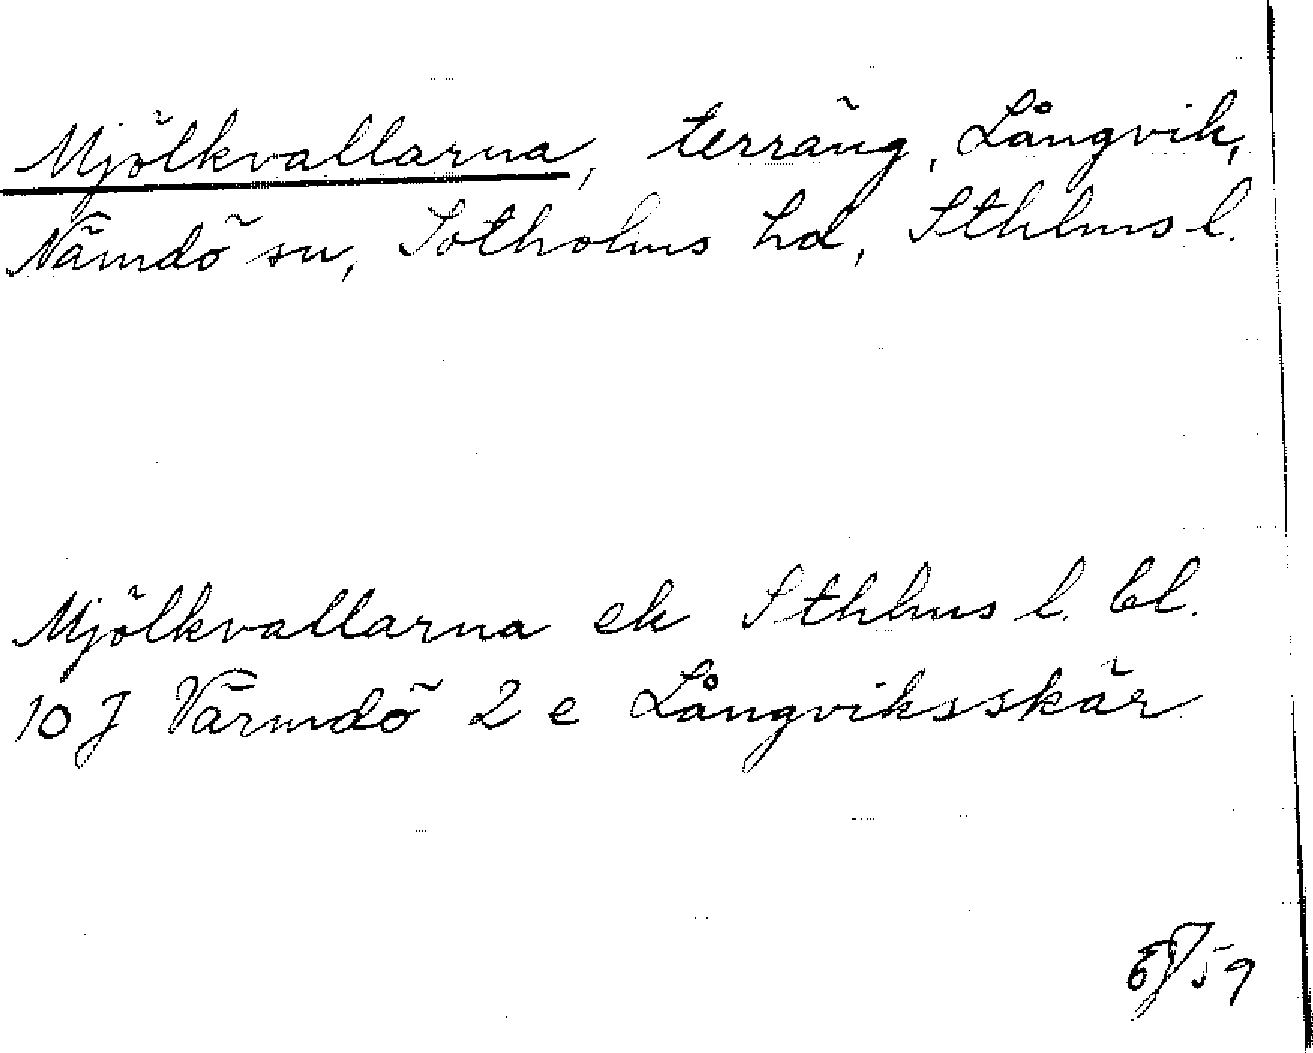 Mjölkvallarna, terräng, Långvik,
Nämdö sn, Sotholms hd, Sthlms l.
Mjölkvallarna ek Sthlms l. bl.
10 J Värmdö 2 e Långviksskär
59